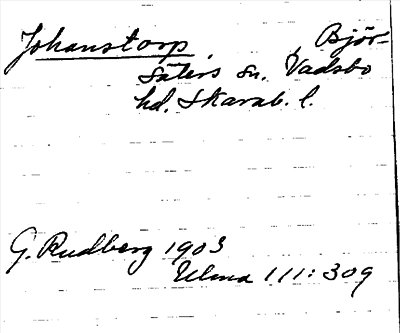 Johanstorp, Björ-
säters sn. Vadsbo
hd. Skarab. l.
G. Rudberg 1903
Ulma 111:309